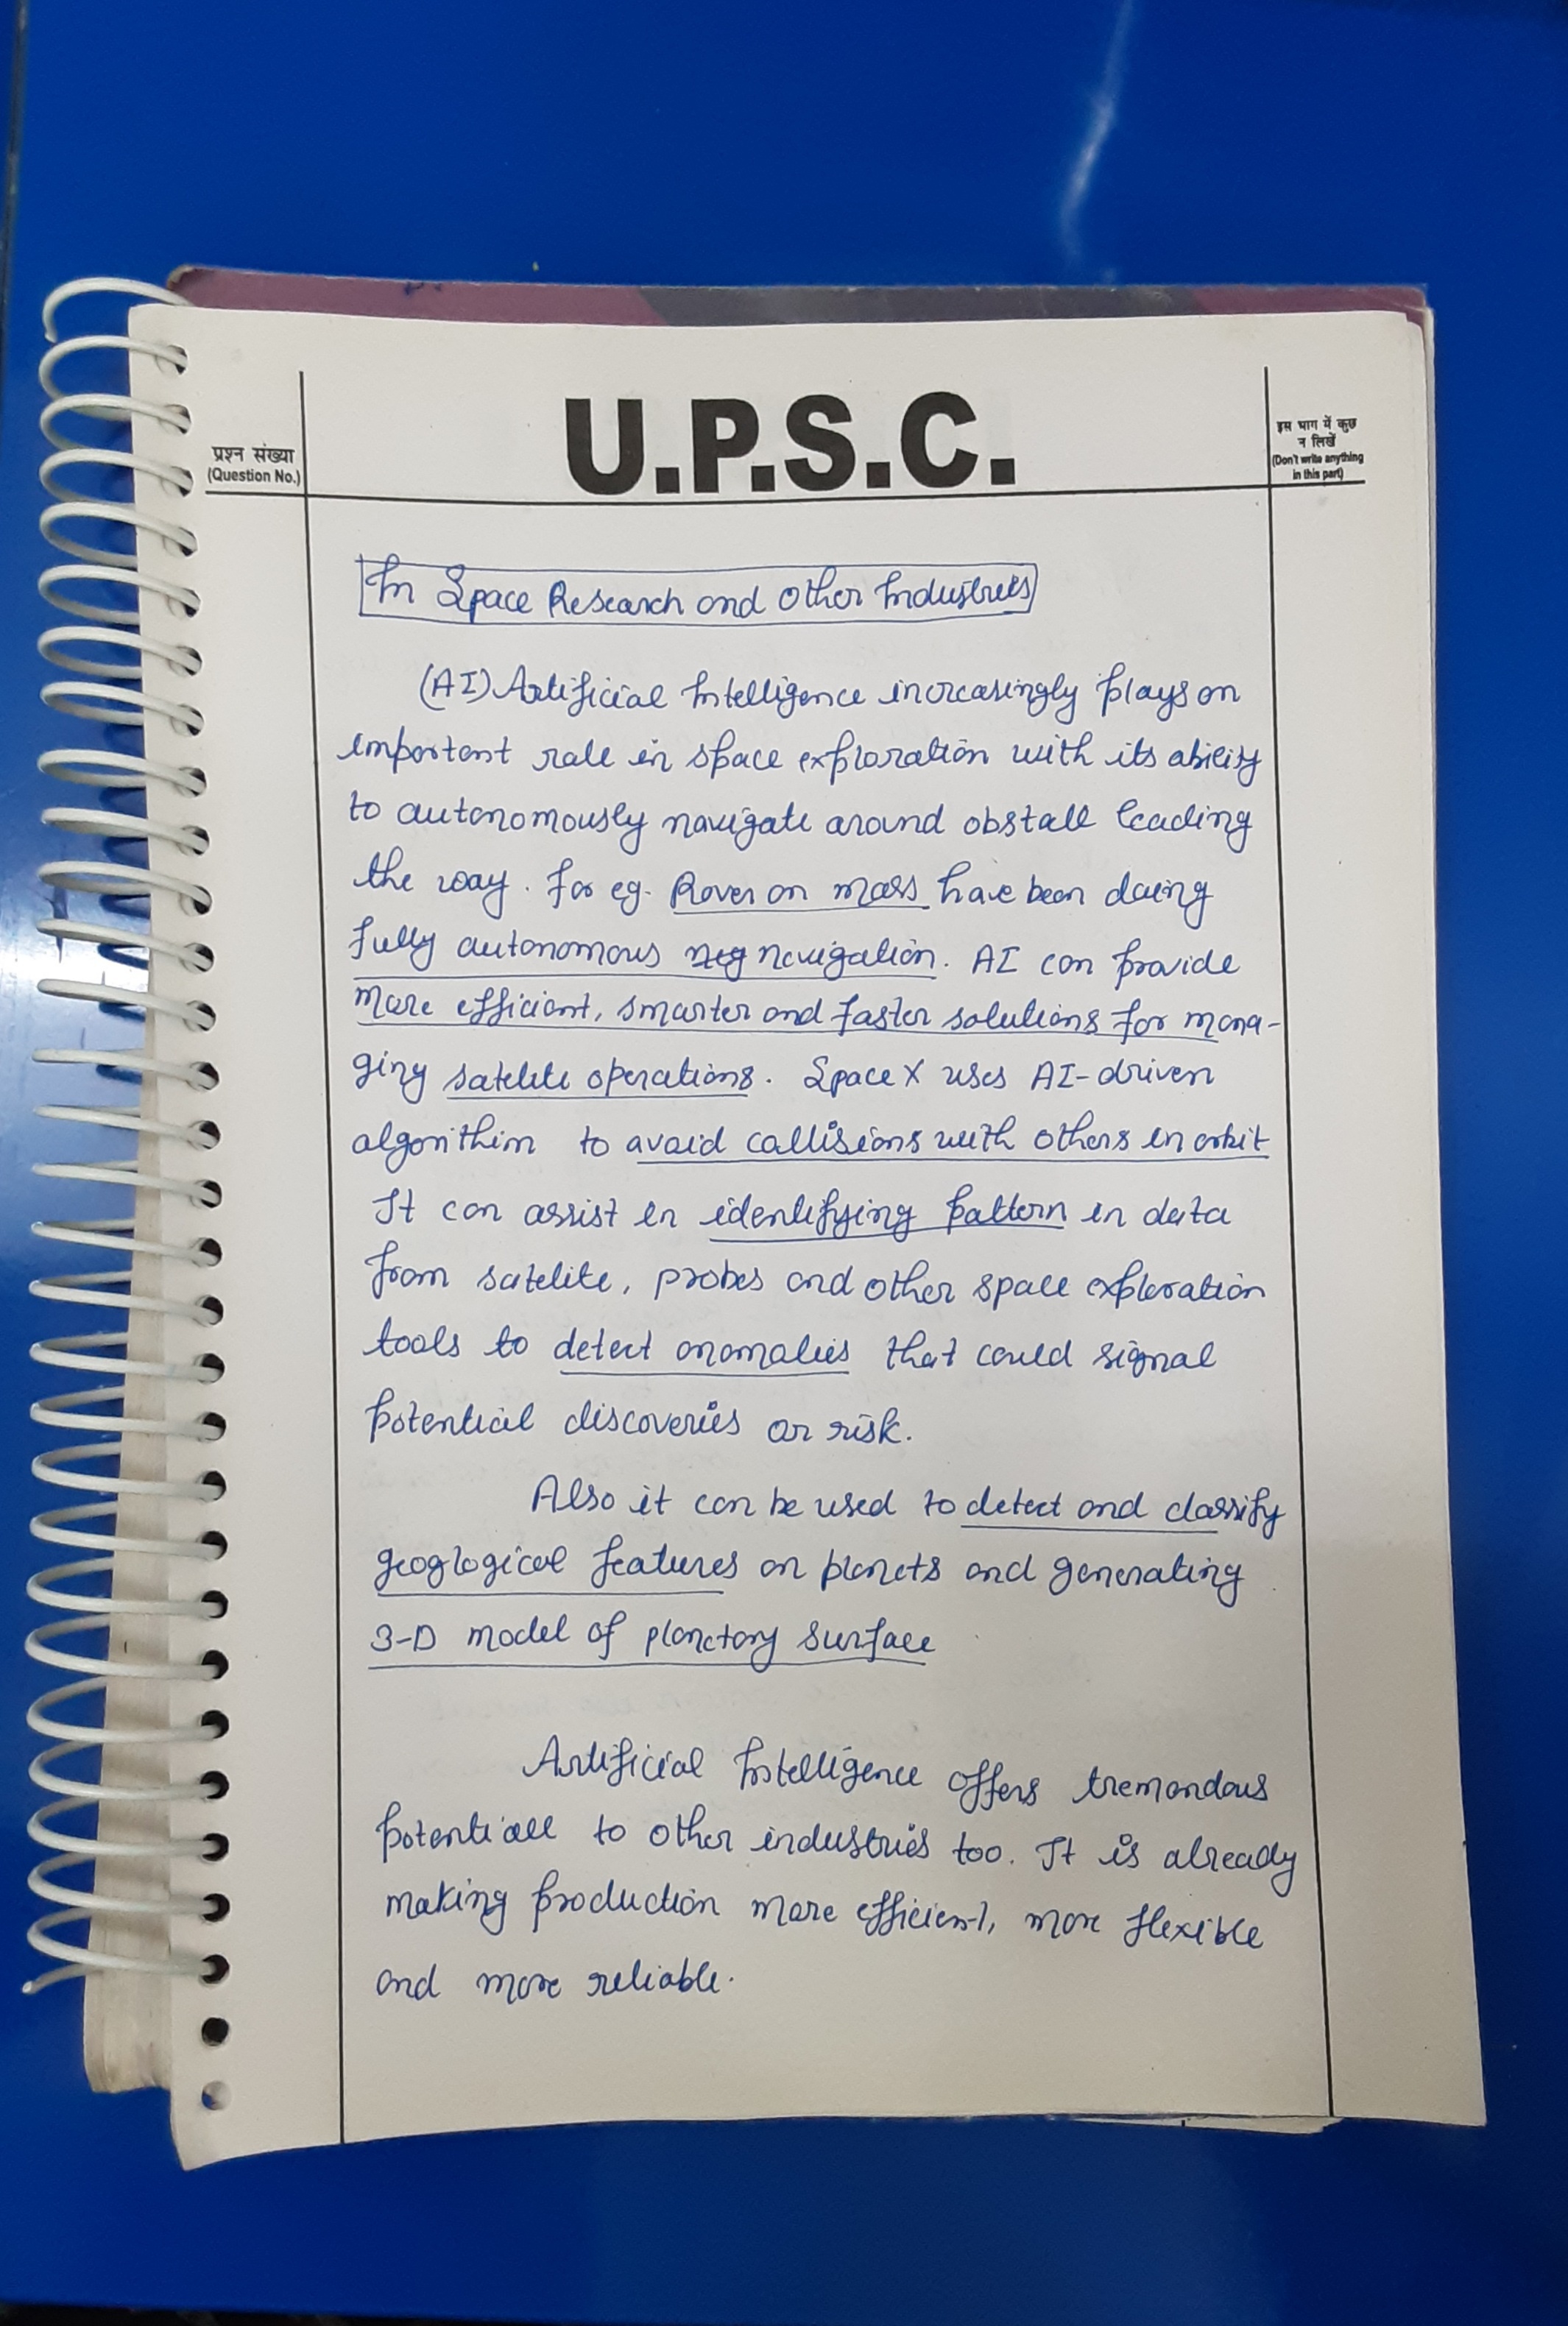 U.P.S.C.
प्रश्न संख्या
(Question No.)
इस भाग में कुछ
न लिखें
(Don't write anything
in this part)
In Space Research and Other Industries
(AI) Artificial Intelligence increasingly plays an
important role in space exploration with its ability
to autonomously navigate around obstall leading
the way. For eg. Rover on mass have been doing
fully autonomous neg navigation. AI can provide
more efficient, smarter and faster solutions for mana-
ging satelite operations. Space X uses AI-driven
algorithim to avoid collisions with others in orbit
It can assist in identifying pattern in data
from satelite, probes and other space exploration
tools to detect anomalies that could signal
potential discoveries or risk.
Also it can be used to detect and classify
geoglogical features on planets and generating
3-D model of planetary surface
Artificial Intelligence offers tremandous
potentiall to other industries too. It is already
making production more efficient, more flexible
and more reliable.